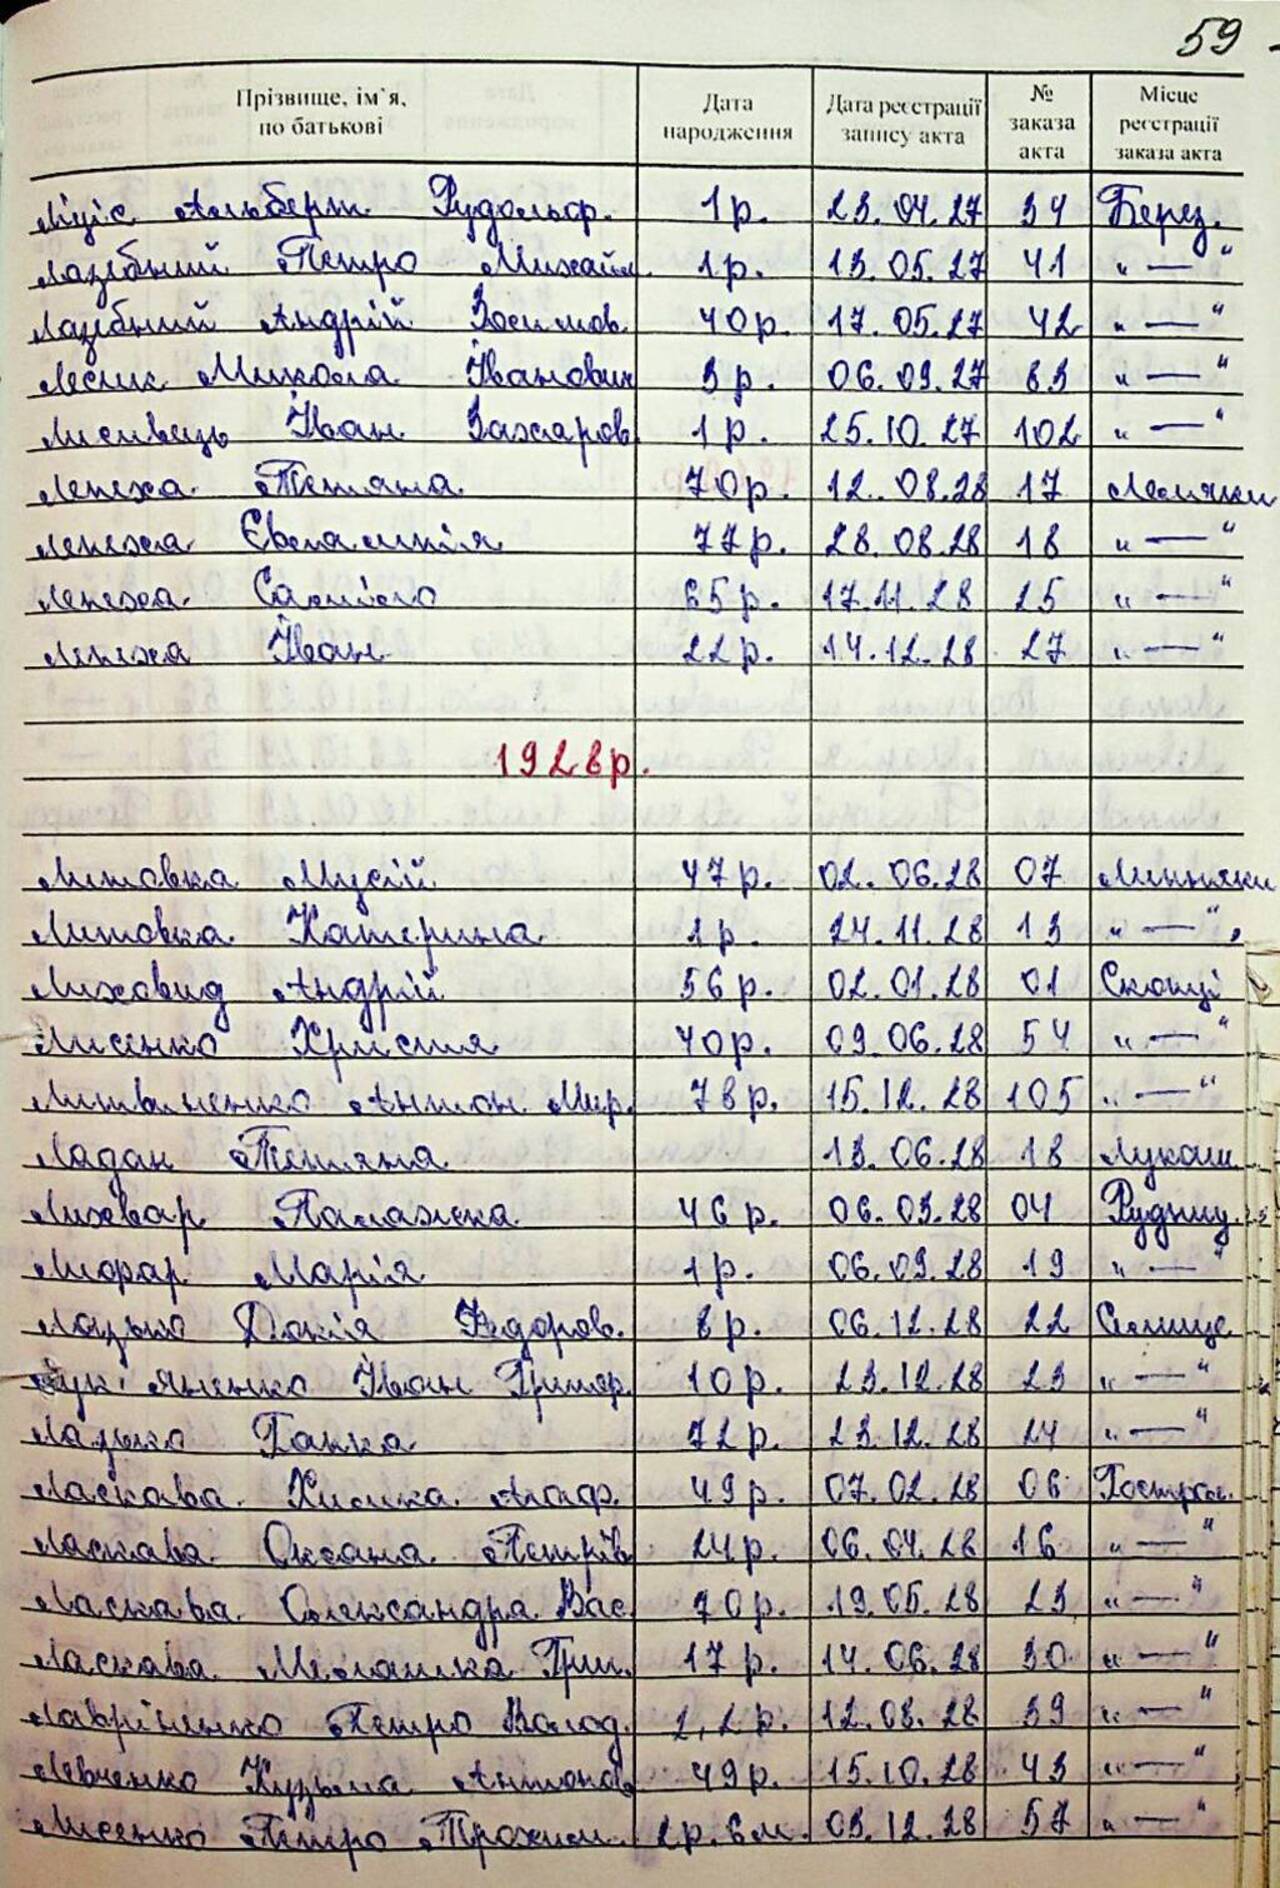 59
Прізвище, ім`я, по батькові Дата народження Дата реєстрації запису акта № заказа акта Місце реєстрації заказа акта
Альберт Рудольф. 1р. 23.04.27 34 Берез.
Лазебний Петро Михайл. 1р. 13.05.27 41 „—“
Лазебний Андрій Зосимов. 40р. 17.05.27 42 „—“
Леслик Микола Іванович 3р. 06.09.27 83 „—“
Лисивець Іван Захаров 1р. 25.10.27 102 „—“
Лепеха Тетяна 70р. 12.08.28 17 Лемляки
Лепеха Євгамнія 77р. 28.08.28 18 „—“
Лепеха Самійло 65р. 17.11.28 25 „—“
Лепеха Іван 22р. 14.12.28 27 „—“
1928р.
Литовка Мусій 47р. 02.06.28 07
Литовка Катерина 1р. 24.11.28 13 „—“
Лиховид Андрій 56р. 02.01.28 01 Скопці
Лисенко Христя 40р. 09.06.28 54 „—“
Литвиненко Антон Мир. 78р. 15.12.28 105 „—“
Ладан Тетяна 13.06.28 18 Лукаш.
Лихвар Палажка 46р. 06.03.28 04 Рудниц.
Лифар Марія 1р. 06.09.28 19 „—“
Лазько Докія Федоров. 8р. 06.12.28 22 Селище
Лук'яненко Іван Григор. 10р. 23.12.28 23 „—“
Лазько Ганка 72р. 23.12.28 24 „—“
Ласкава Химка Агаф. 49р. 07.02.28 06 Гостро.
Ласкава Оксана Петрів. 24р. 06.04.28 16 „—“
Ласкава Олександра Вас. 70р. 19.05.28 23 „—“
Ласкава Мелашка Григ. 17р. 14.06.28 30 „—“
Лавріненко Петро Волод. 2,2р. 12.08.28 39 „—“
Левченко Кузьма Антонов. 49р. 15.10.28 43 „—“
Лисенко Петро Трохим. 2р.6м. 03.12.28 57 „—“